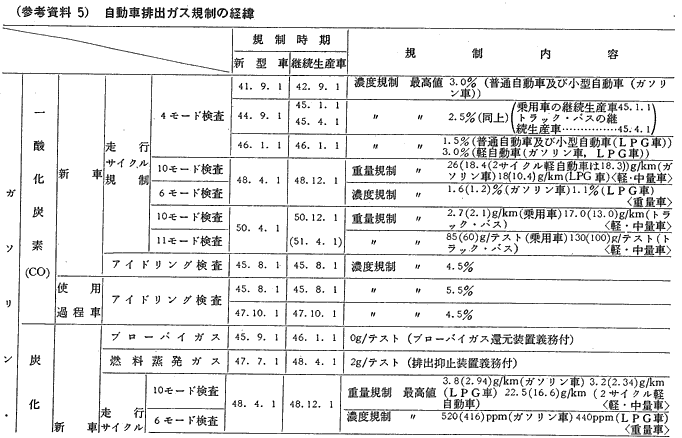 (参考資料 5) 自動車排出ガス規制の経緯
規制時期
規制内容
新型車 継続生産車
ガソリン・
一酸化炭素(CO)
新車
走行サイクル規制
4モード検査
41. 9. 1 42. 9. 1 濃度規制 最高値 3.0% (普通自動車及び小型自動車 (ガソリン車))
44. 9. 1 45. 1. 1 45. 4. 1 〃 〃 2.5%(同上) (乗用車の継続生産車45.1.1 トラック・バスの継続生産車……………45.4.1)
46. 1. 1 46. 1. 1 〃 〃 1.5%(普通自動車及び小型自動車(LPG車)) 3.0%(軽自動車(ガソリン車, LPG車))
10モード検査 48. 4. 1 48.12. 1 重量規制 〃 26(18.4(2サイクル軽自動車は18.3))g/km(ガソリン車)18(10.4)g/km(LPG車)<軽・中量車>
6モード検査 濃度規制 〃 1.6(1.2)%(ガソリン車)1.1%(LPG車) <重量車>
10モード検査 50. 4. 1 50.12. 1 重量規制 〃 2.7(2.1)g/km(乗用車)17.0(13.0)g/km(トラック・バス) <軽・中量車>
11モード検査 (51. 4. 1) 〃 〃 85(60)g/テスト(乗用車)130(100)g/テスト(トラック・バス) <軽・中量車>
アイドリング検査 45. 8. 1 45. 8. 1 濃度規制 〃 4.5%
使用過程車
アイドリング検査 45. 8. 1 45. 8. 1 〃 〃 5.5%
47.10. 1 47.10. 1 〃 〃 4.5%
炭化
新車
ブローバイガス 45. 9. 1 46. 1. 1 0g/テスト (ブローバイガス還元装置義務付)
燃料蒸発ガス 47. 7. 1 48. 4. 1 2g/テスト (排出抑止装置義務付)
走行サイクル
10モード検査 48. 4. 1 48.12. 1 重量規制 最高値 3.8(2.94)g/km(ガソリン車) 3.2(2.34)g/km(LPG車) 22.5(16.6)g/km (2サイクル軽自動車) <軽・中量車>
6モード検査 濃度規制 〃 520(416)ppm(ガソリン車) 440ppm(LPG車) <重量車>